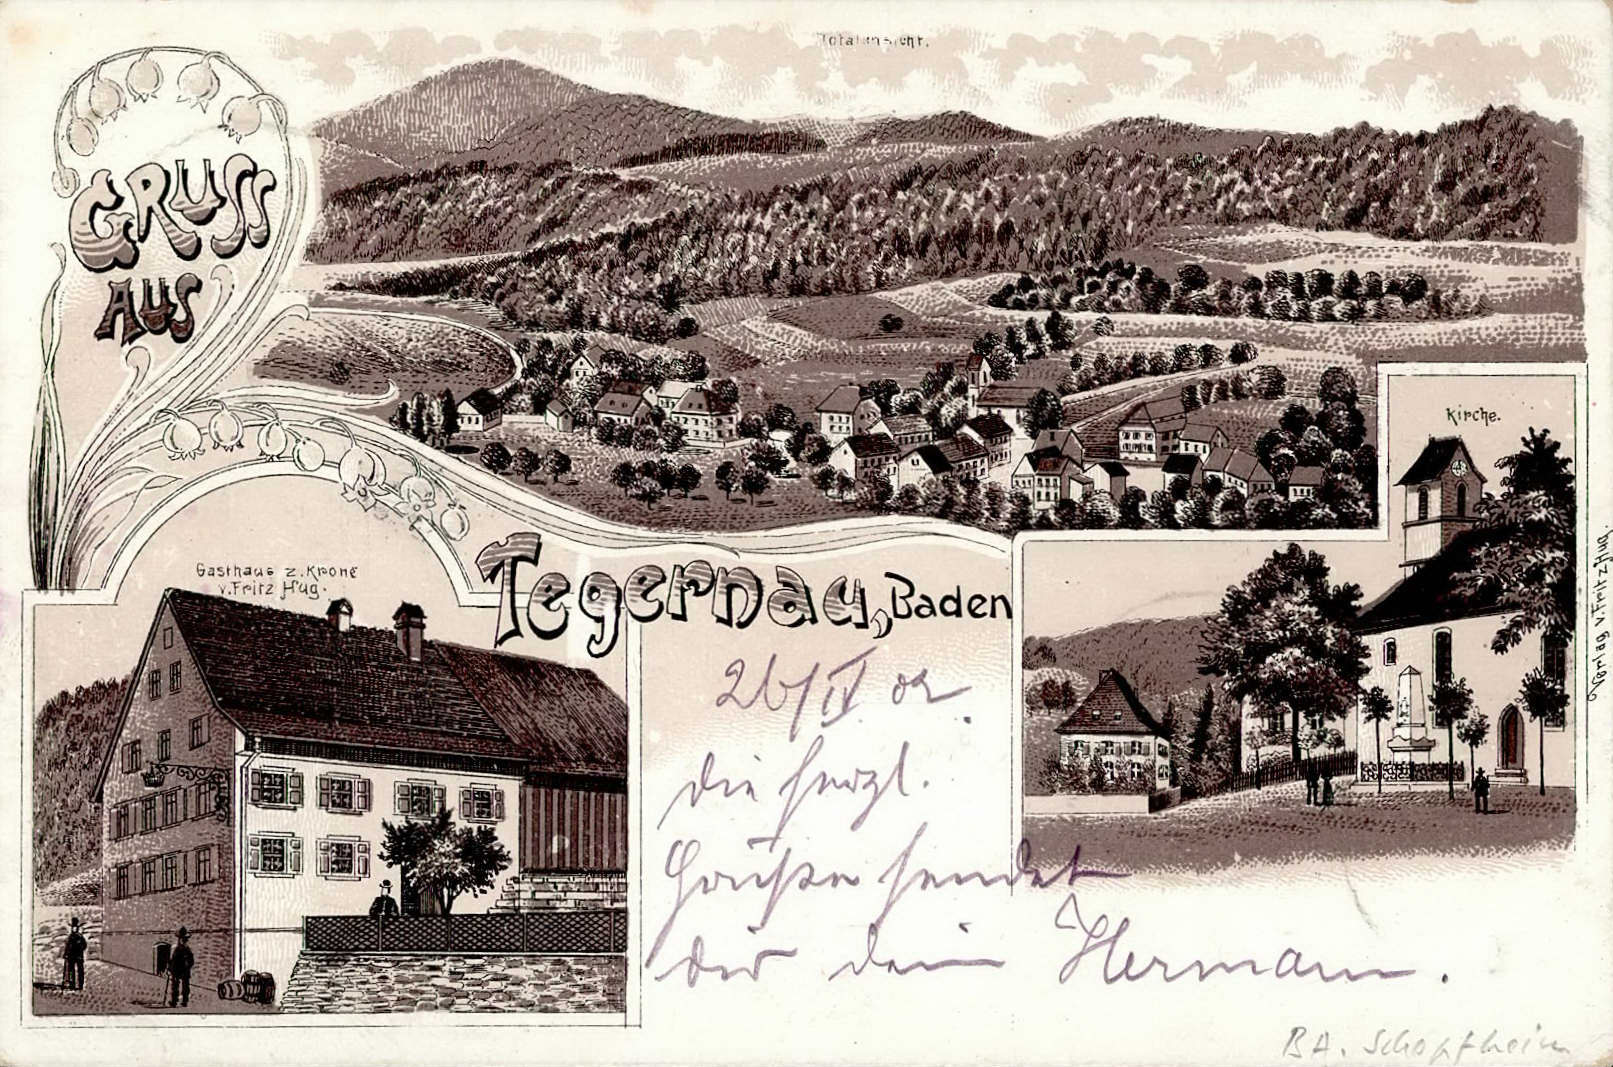 Totalansicht.
GRUSS
AUS
Kirche.
Gasthaus z. Krone
v. Fritz Hug.
Tegernau, Baden
Verlag v. Fritz Hug.
26/IV 02.
die herzl.
Grüße sendet
dir dein Hermann.
BA. Schopfheim